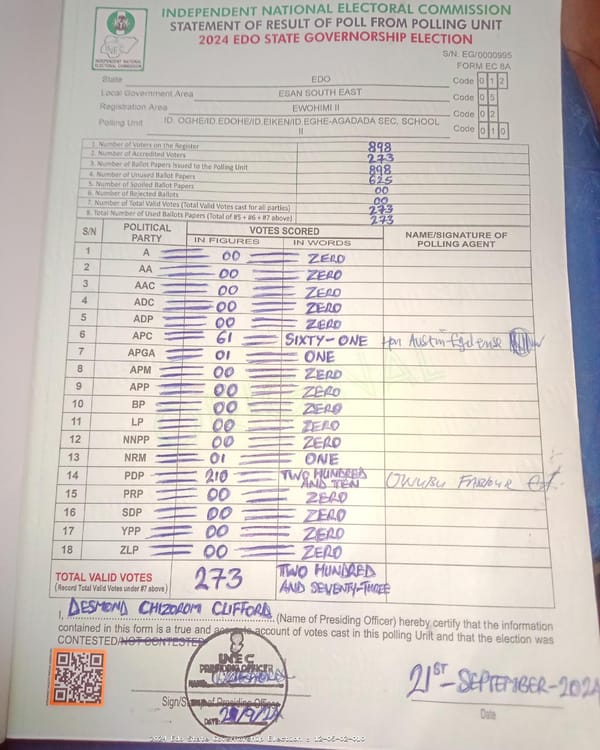 INDEPENDENT NATIONAL ELECTORAL COMMISSION
STATEMENT OF RESULT OF POLL FROM POLLING UNIT
2024 EDO STATE GOVERNORSHIP ELECTION
INEC
INDEPENDENT NATIONAL ELECTORAL COMMISSION
S/N: EG/0000995
FORM EC 8A
State EDO Code 0 1 2
Local Government Area ESAN SOUTH EAST Code 0 5
Registration Area EWOHIMI II Code 0 2
Polling Unit ID. OGHE/ID.EDOHE/ID.EIKEN/ID.EGHE-AGADADA SEC. SCHOOL II Code 0 1 0
1. Number of Voters on the Register 898
2. Number of Accredited Voters 273
3. Number of Ballot Papers Issued to the Polling Unit 898
4. Number of Unused Ballot Papers 625
5. Number of Spoiled Ballot Papers 00
6. Number of Rejected Ballots 00
7. Number of Total Valid Votes (Total Valid Votes cast for all parties) 273
8. Total Number of Used Ballots Papers (Total of #5 + #6 + #7 above) 273
S/N POLITICAL PARTY VOTES SCORED NAME/SIGNATURE OF POLLING AGENT
IN FIGURES IN WORDS
1 A 00 ZERO
2 AA 00 ZERO
3 AAC 00 ZERO
4 ADC 00 ZERO
5 ADP 00 ZERO
6 APC 61 SIXTY-ONE Hon Austin
7 APGA 01 ONE
8 APM 00 ZERO
9 APP 00 ZERO
10 BP 00 ZERO
11 LP 00 ZERO
12 NNPP 00 ZERO
13 NRM 01 ONE
14 PDP 210 TWO HUNDRED AND TEN
15 PRP 00 ZERO
16 SDP 00 ZERO
17 YPP 00 ZERO
18 ZLP 00 ZERO
TOTAL VALID VOTES 273 TWO HUNDRED AND SEVENTY-THREE
(Record Total Valid Votes under #7 above)
I, DESMOND CHIZOROM CLIFFORD (Name of Presiding Officer) hereby certify that the information
contained in this form is a true and accurate account of votes cast in this polling Unit and that the election was
CONTESTED/NOT CONTESTED
INEC
PRESIDING OFFICER
Sign/Stamp of Presiding Officer
DATE: 21/9/24
21ST-SEPTEMBER-2024
Date
2024 Edo State Governorship Election : 12-05-02-010